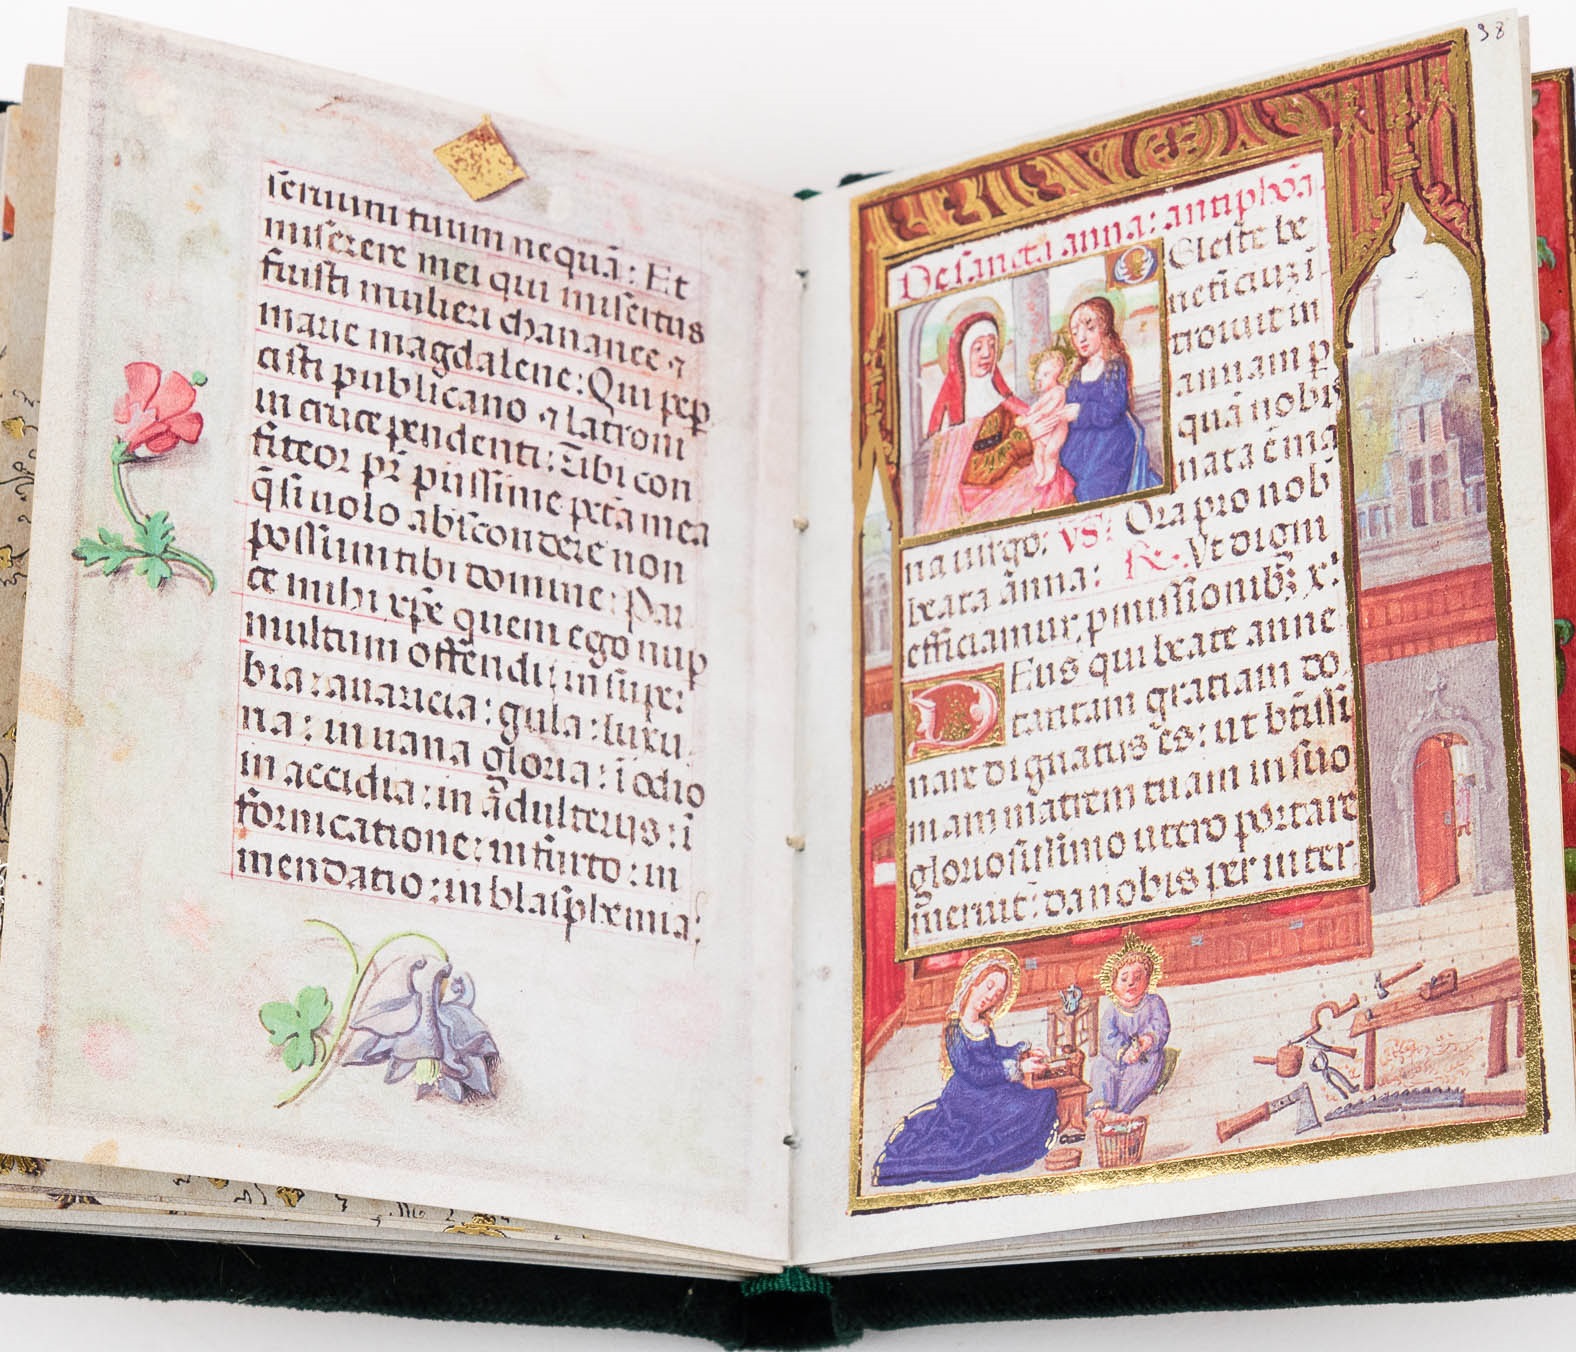 seruum tuum nequā: Et
miserere mei qui misertus
fuisti mulieri chananee ⁊
marie magdalene: Qui pep
cisti publicano ⁊ latroni
in cruce pendenti: Tibi con
fiteor pr̄ piissime pctā mea
q̄ si uolo abscondere non
possum tibi domine: Par
ce mihi xp̄e quem ego nup
multum offendi: in supe:
bia: auaricia: gula: luxu
na: in uana gloria: ī odio
in accidia: in adulterijs: ī
fornicatione: in furto: in
mendatio: in blasphemia:
38
De sancta anna: antiphōa
Celeste be
neficiū
trouiut in
annam p
quā nobis
nata ē ma
ria uirgo: vs: Ora pro nob
beata āna: R: Vt digni
efficiamur pmissionibꝫ x:
Deus qui beate anne
tantam gratiam do
nare dignatus es: ut btissi
mam matrem tuam in suo
gloriosissimo utero portare
meruit: da nobis per inter